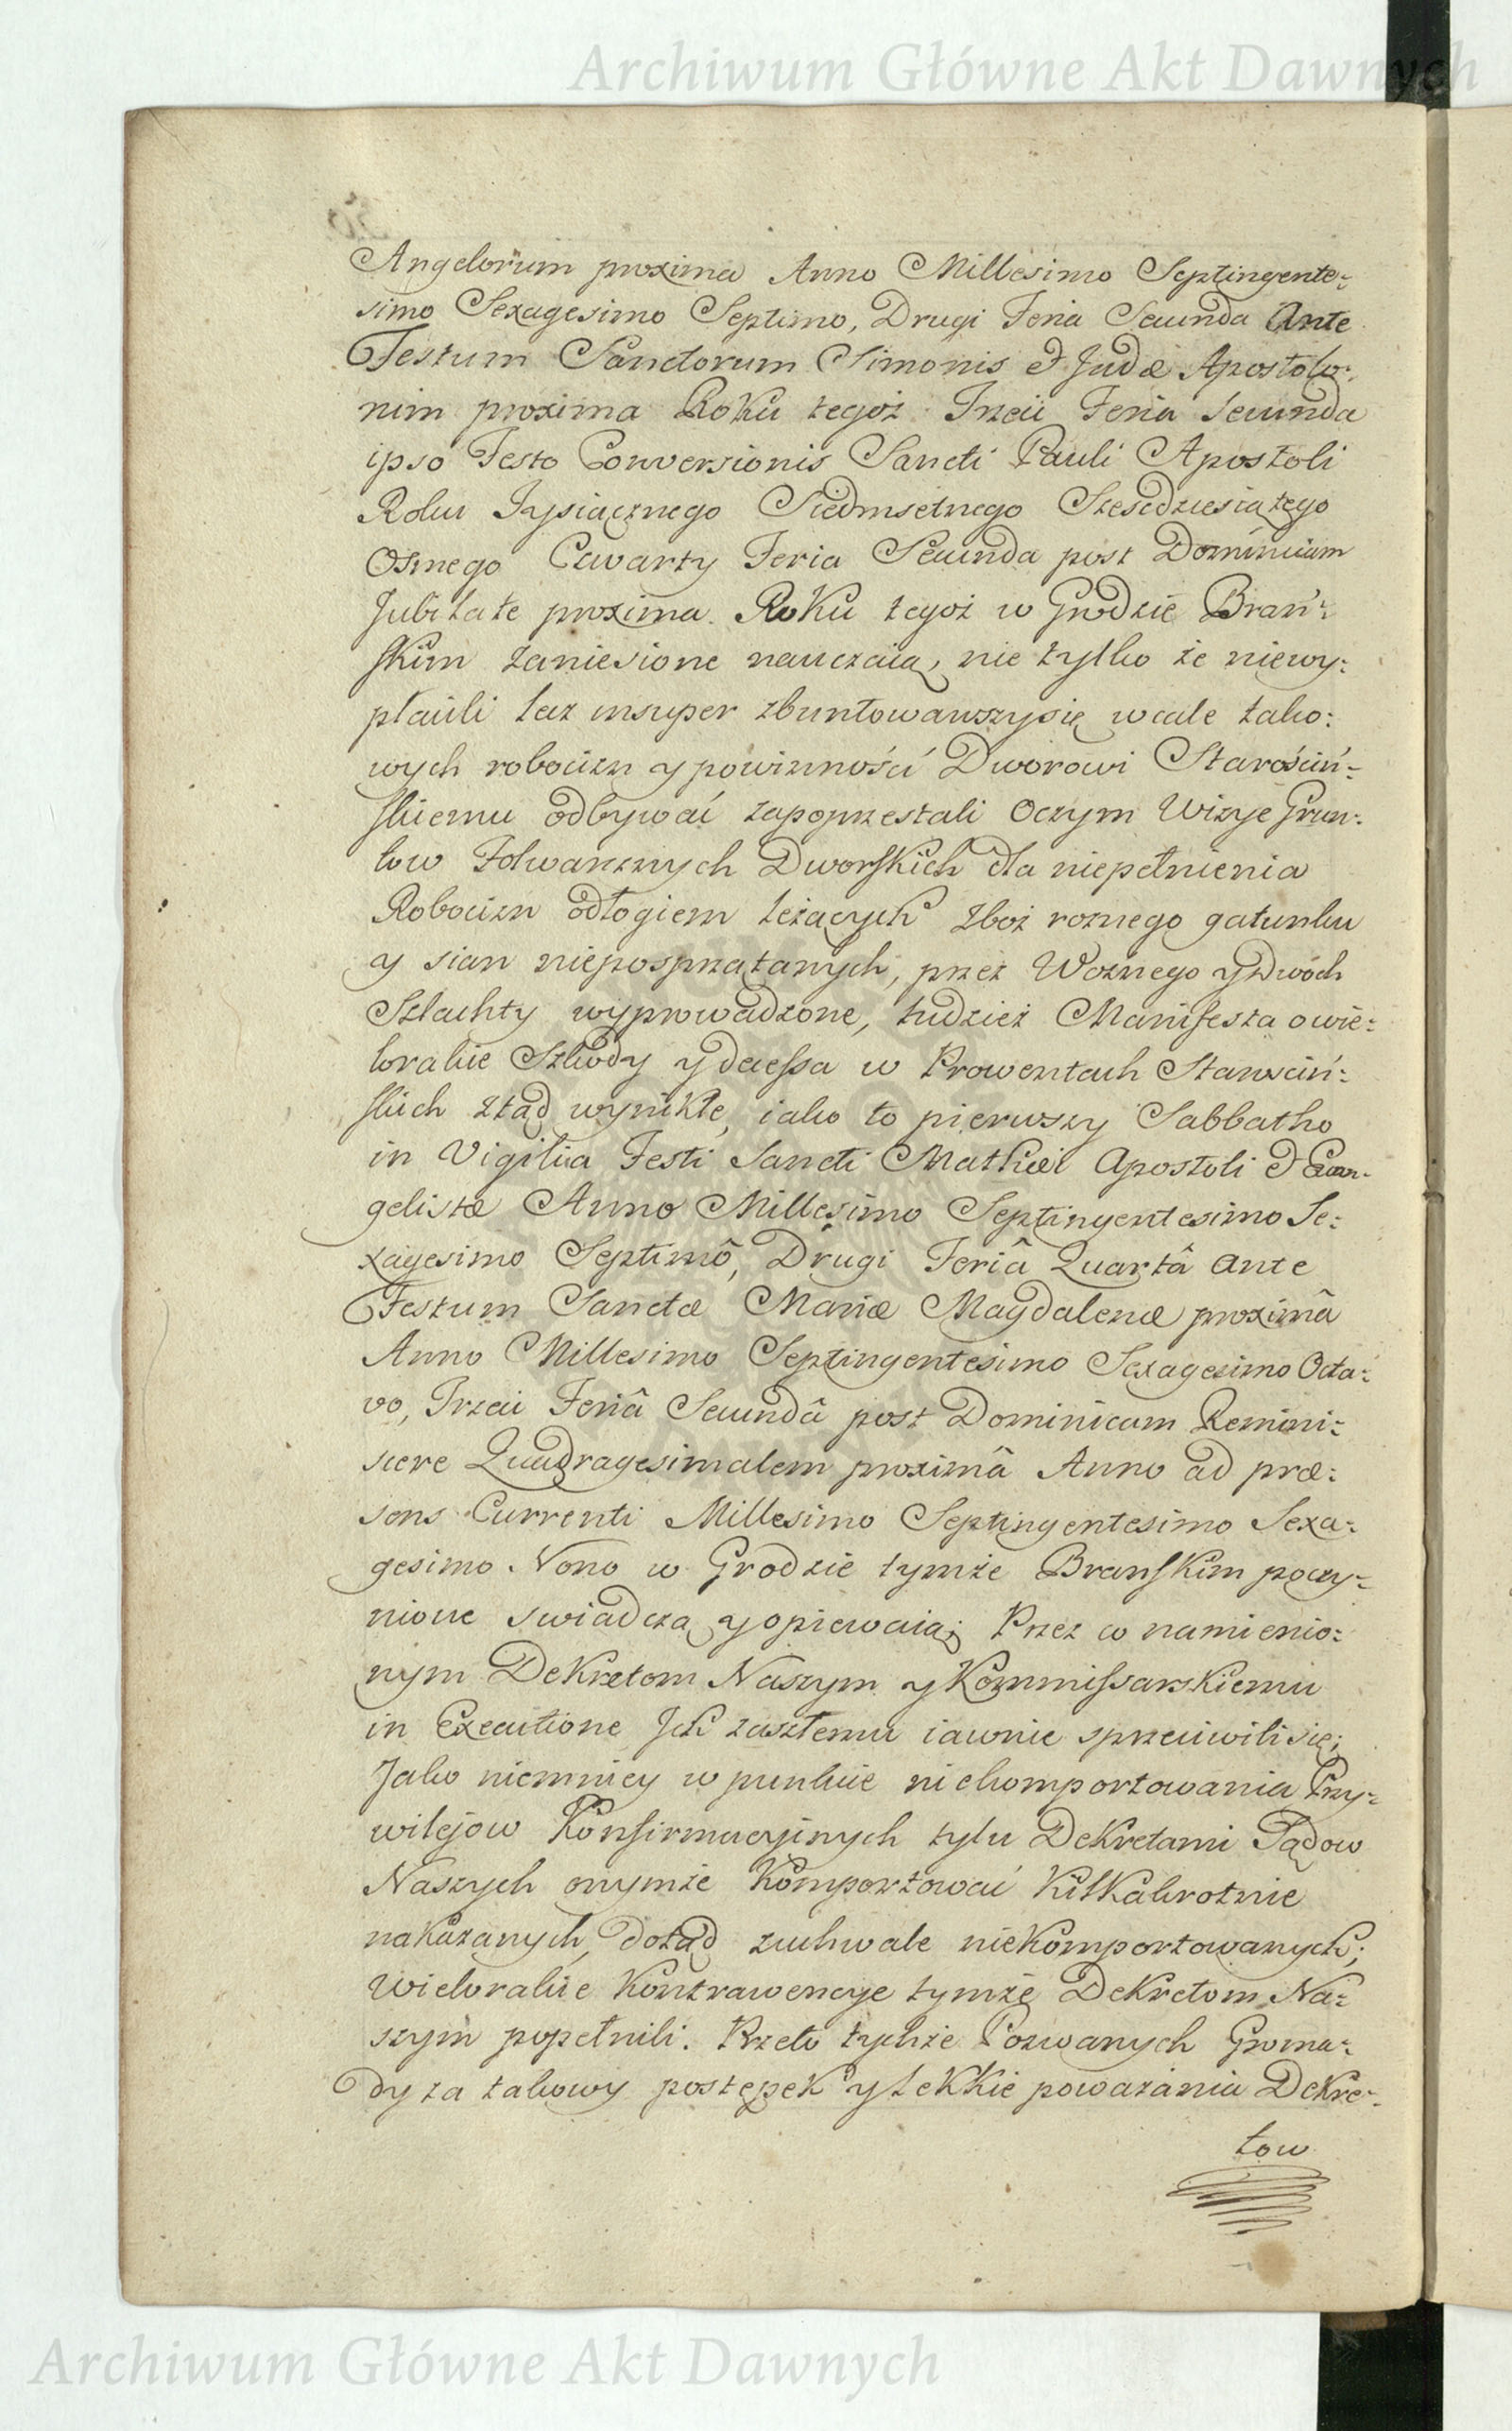 Archiwum Główne Akt Dawnych
Angelorum proxima Anno Millesimo Septingente=
simo Sexagesimo Septimo, Drugi Feria Secunda Ante
Festum Sanctorum Simonis et Judæ Apostolo=
rum proxima Roku tegoż Trzeci Feria Secunda
ipso Festo Conversionis Sancti Pauli Apostoli
Roku Tysiącznego Siedmsetnego Szescdziesiątego
Osmego Czwarty Feria Secunda post Dominicam
Jubilate proxima. Roku tegoż w Grodzie Brań=
skim zaniesione nauczaią, nie tylko że niewy=
płacili lecz insuper zbuntowawszysię wcale tako=
wych robocizn y powinności Dworowi Starościń=
skiemu odbywać zapoprzestali Oczym Wizye Grun=
tow Folwarcznych Dworskich dla niepełnienia
Robocizn odłogiem leżących Zboż rożnego gatunku
y sian nieposprzątanych, przez Woznego y Dwoch
Szlachty wyprowadzone, tudzież Manifesta o wie=
lorakie Szkody y decessa w Prowentach Starościń=
skich ztąd wynikłe, iako to pierwszy Sabbatho
in Vigilia Festi Sancti Mathæi Apostoli et Evan=
gelistæ Anno Millesimo Septingentesimo Se=
xagesimo Septimô, Drugi Feriâ Quartâ Ante
Festum Sanctæ Mariæ Magdalenæ proximâ
Anno Millesimo Septingentesimo Sexagesimo Octa=
vo, Trzeci Feriâ Secundâ post Dominicam Remini=
scere Quadragesimalem proximâ Anno ad præ=
sens Currenti Millesimo Septingentesimo Sexa=
gesimo Nono w Grodzie tymże Branskim poczy=
nione swiadczą y opiewaią; Przez co namienio=
nym Dekretom Naszym y Kommissarskiemu
in Executione Ich zaszłemu iawnie sprzeciwili się;
Jako niemniey w punkcie niekomportowania Przy=
wilejow Konfirmacyinych tylu Dekretami Sądow
Naszych onymże Komportować Kilkakrotnie
nakazanych, dotąd zuchwale niekomportowanych;
Wielorakie Kontrawencye tymże Dekretom Na=
szym popełnili. Przeto tychże Pozwanych Groma=
dy za takowy postępek y lekkie poważania Dekre=
tow
Archiwum Główne Akt Dawnych